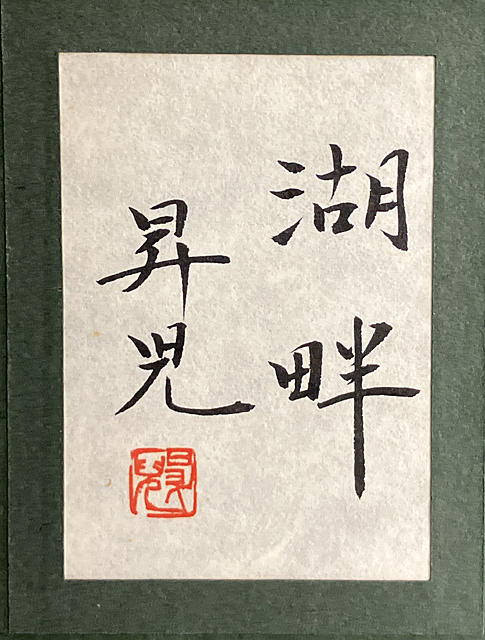 湖畔
昇児